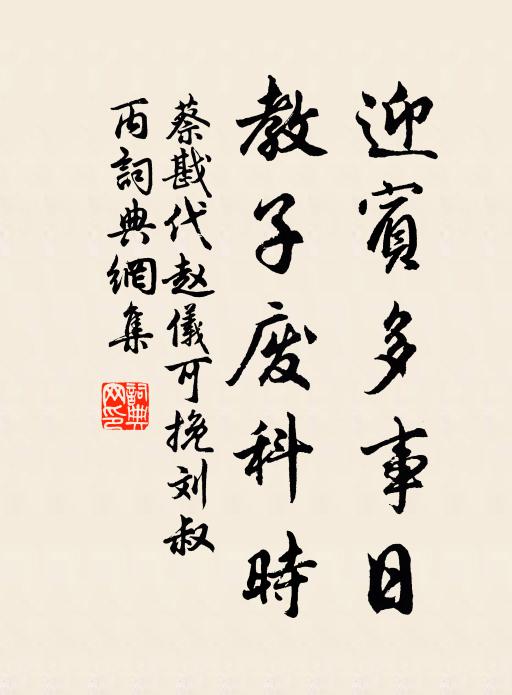 迎賓多事日
教子废科時
蔡戡代赵儀可挽刘叔
丙詞典網集
詞典網印